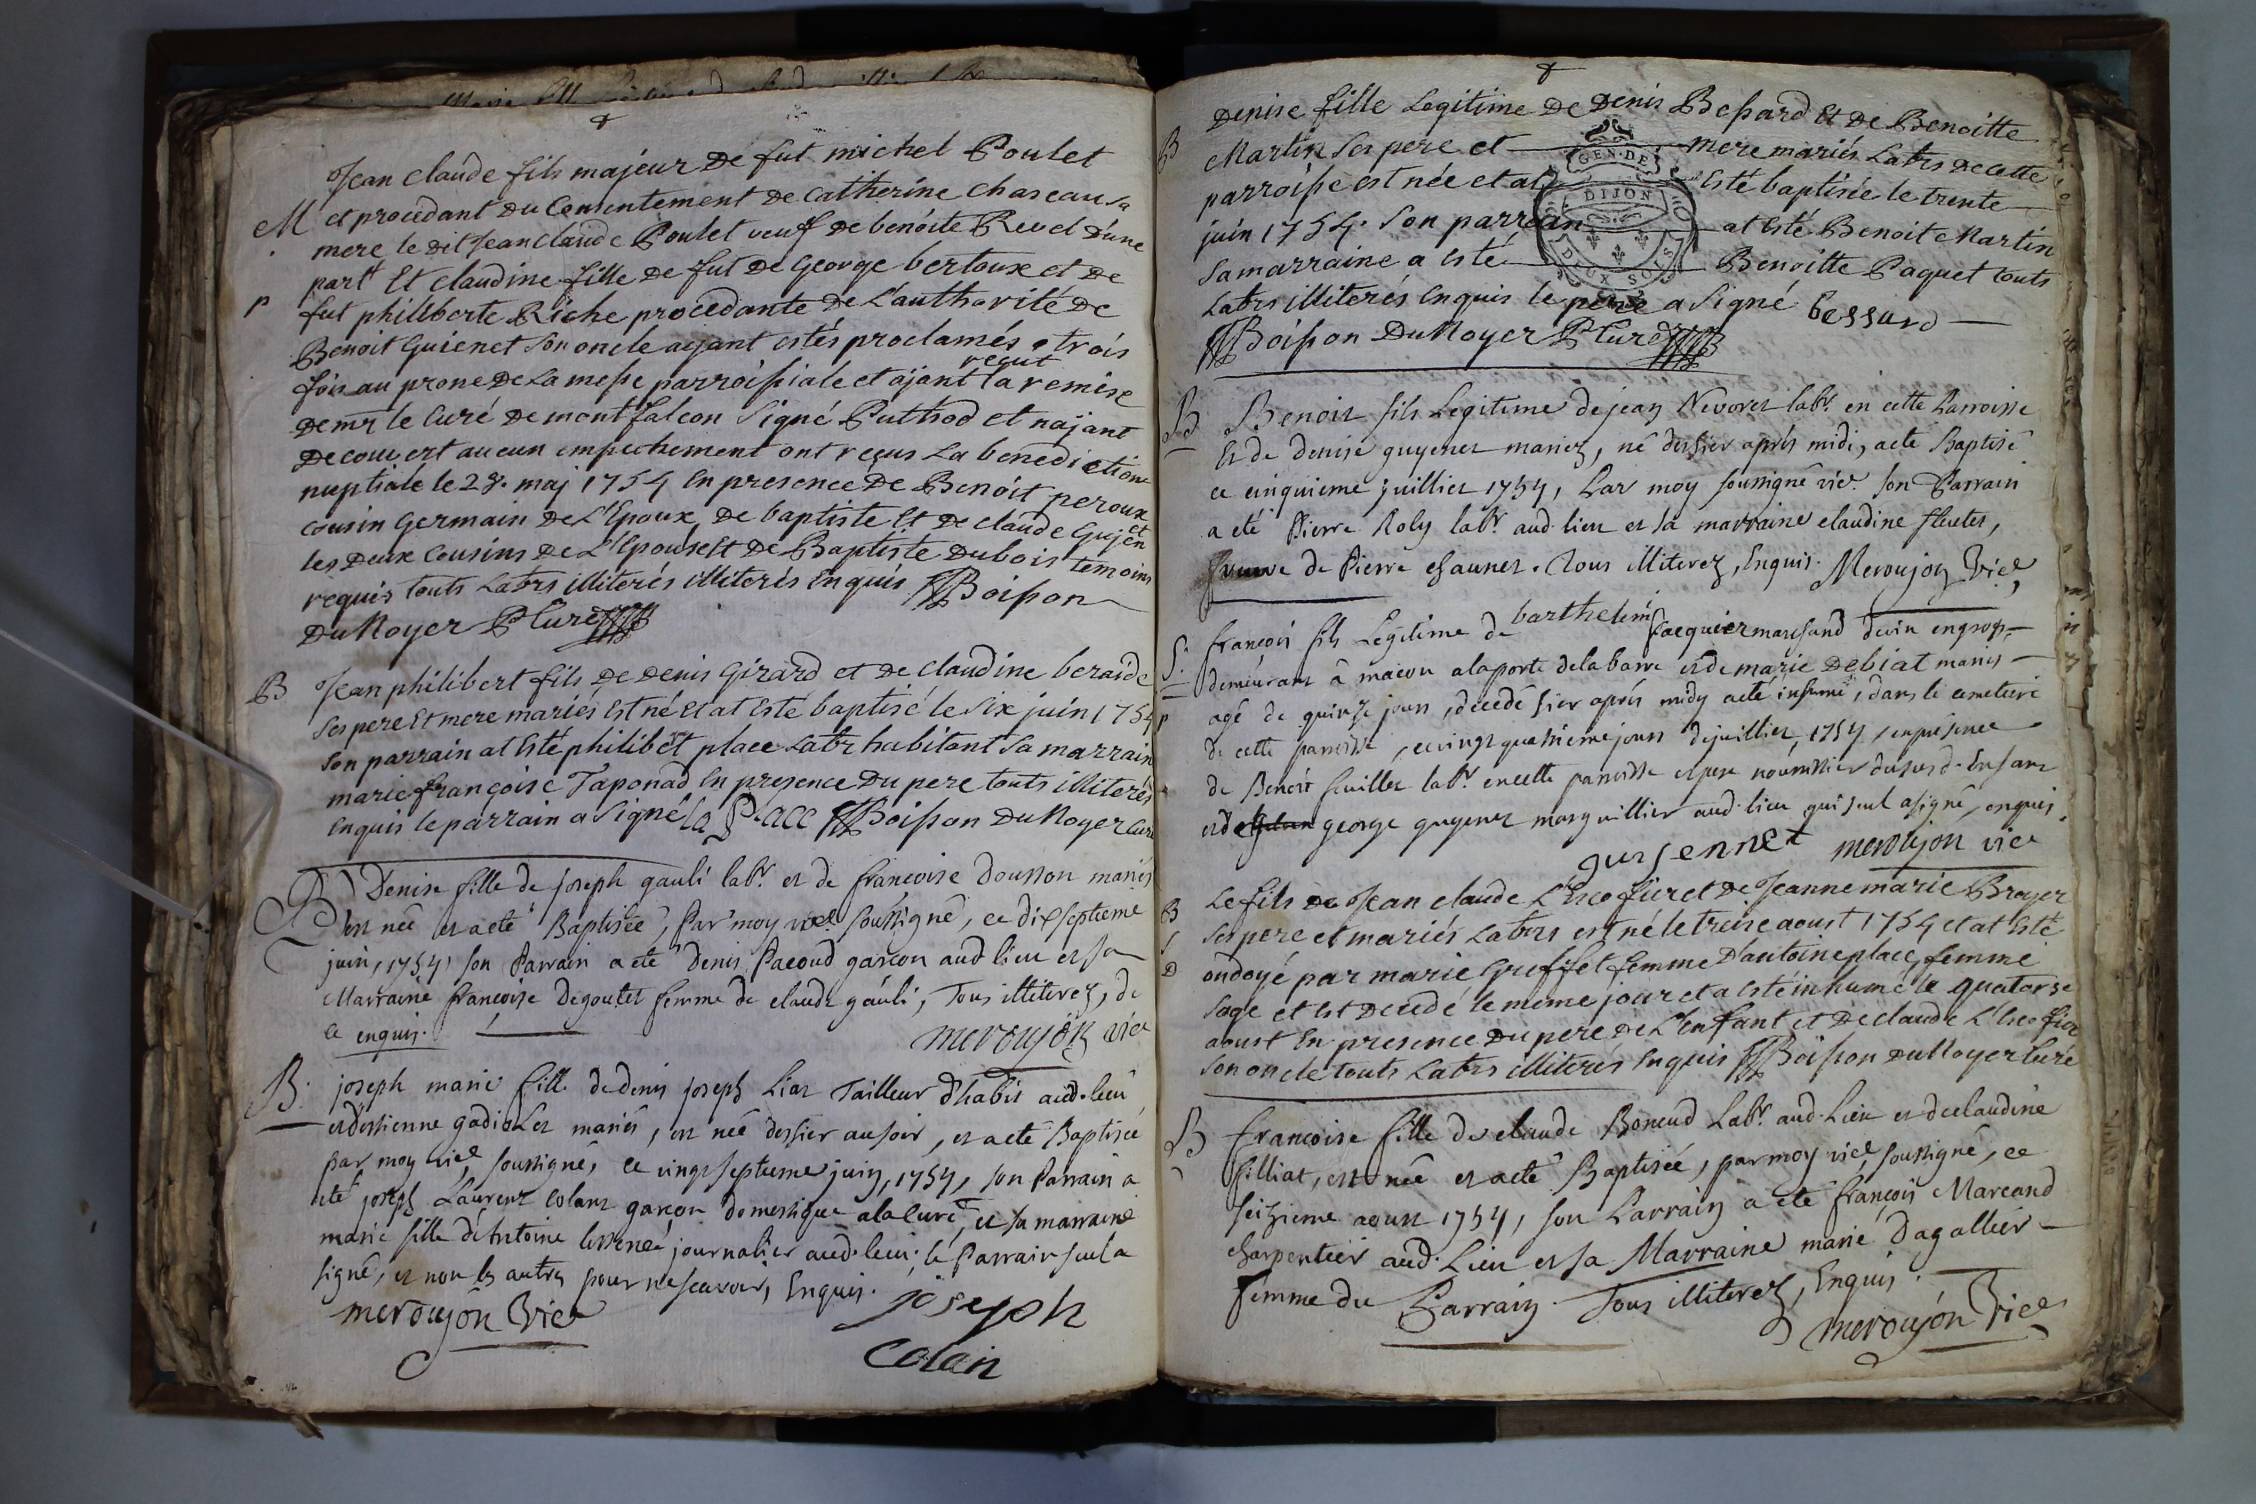 Jean claude fils majeur de fut michel Poulet
M et procedant du Consentement de Catherine Chaseau sa
mere le dit Jean claude Poulet veuf de benoite Revel d'une
part Et claudine fille de fut De George bertoux et De
p fut philiberte Riche procedante de L'authorité de
Benoit Guienet Son oncle ayant estés proclamés trois
fois au prone De La messe parroissiale et ajant reçut la remise
De mr le Curé De montfalcon Signé Puthod et najant
Decouvert aucun empechement ont reçus La benediction
nuptiale le 28. maj 1754 En presence De Benoit peroux
Cousin Germain De L'Epoux, De baptiste Et De claude Gujenet
les Deux Cousins De L'Epouse Et De Baptiste Dubois temoins
requis touts Labrs illiterés illiterés Enquis Boisson
Du Noyer P Curé
B Jean philibert fils De Denis Girard et De claudine beraide
Ses pere Et mere mariés Est né Et at Esté baptisé le Six juin 1754
Son parrain at Esté philibert place Labr habitant Sa marraine
marie françoise Taponad En presence Du pere touts illiterés
Enquis le parrain a Signé la Place Boisson Du Noyer Curé
B Denise fille de joseph gauli labr. et de francoise Dousson mariés
est née et a eté Baptisée, Par moy vice. soussigné, ce dixseptieme
juin, 1754, son Parrain a eté Denis Pacoud garcon aud lieu et sa
Marraine françoise Degoulet femme de claude gauli, Tous illiterez, de
ce enquis. meroujon vice
B. joseph marie fille de denis joseph Liat Tailleur d'habit aud. lieu
et d'estienne gadiolet mariés, est née d'hier au soir, et a eté Baptisée
par moy vice soussigné, ce vingt septieme juin, 1754, son Parrain a
eté joseph Laurent Colant garçon domestique a la Cure, et sa marraine
marie fille d'Antoine journalier aud. lieu; le Parrain seul a
signé, et non les autres pour ne scavoir, Enquis. joseph
meroujon Vice Colain
Denise fille Legitime De Denis Bessard Et De Benoitte
B Martin Ses pere et mere mariés Labrs De cette
parroisse est née et at Esté baptisée le trente
juin 1754. Son parrain at Esté Benoit Martin
Sa marraine a Esté Benoitte Paquet touts
Labrs illiterés Enquis le pere a Signé bessard
GEN. DE
DIJON
DEUX SOLS
Boisson Du Noyer P Curé
B Benoit fils Legitime de jean Nevoret labr. en cette Parroisse
Et de denise guyenet mariez, né d'hier après midi, a eté Baptisé
ce cinquieme juillet 1754, Par moy soussigné vice. Son Parrain
a eté Pierre Roly labr. aud. lieu et sa marraine claudine fluetet,
veuve de Pierre chaunet. Tous illiterez, Enquis. Meroujon Vice
S. françois fils Legitime de barthelemi Jacquier marchand de vin en gros,
demeurant à macon a la porte de la barre et de marie Debiat mariés
p agé de quinze jours, decedé hier après midy a eté inhumé, dans le cemetiere
de cette paroisse, ce vingt quatrieme jours de juillet, 1754, en presence
de Benoit feuillet labr. en cette paroisse et pere nourrissier du susd. Enfant
et de george guyenet marguillier aud. lieu qui seul a signé, enquis.
guyennet meroujon vice
B Le fils De Jean claude L'Escofier et De Jeanne marie Broyer
S Ses pere et mariés Labrs est né le treise aoust 1754 et at Esté
D ondoyé par marie Greffet femme D'antoine place, femme
Sage et Est Decedé le meme jour et a Esté inhumé le quatorse
aoust En presence Du pere De L'enfant et De claude L'Escofier
Son oncle touts Labrs illiteres Enquis Boisson Du Noyer Curé
B françoise fille de claude Boneud Labr. aud. Lieu et de claudine
filliat, est née et a eté Baptisée, par moy vice, soussigné, ce
seizieme aoust 1754, son Parrain a eté françois Marcand
charpentier aud. Lieu et sa Marraine marie Dagallier
femme du Parrain. Tous illiterez, Enquis.
meroujon Vice